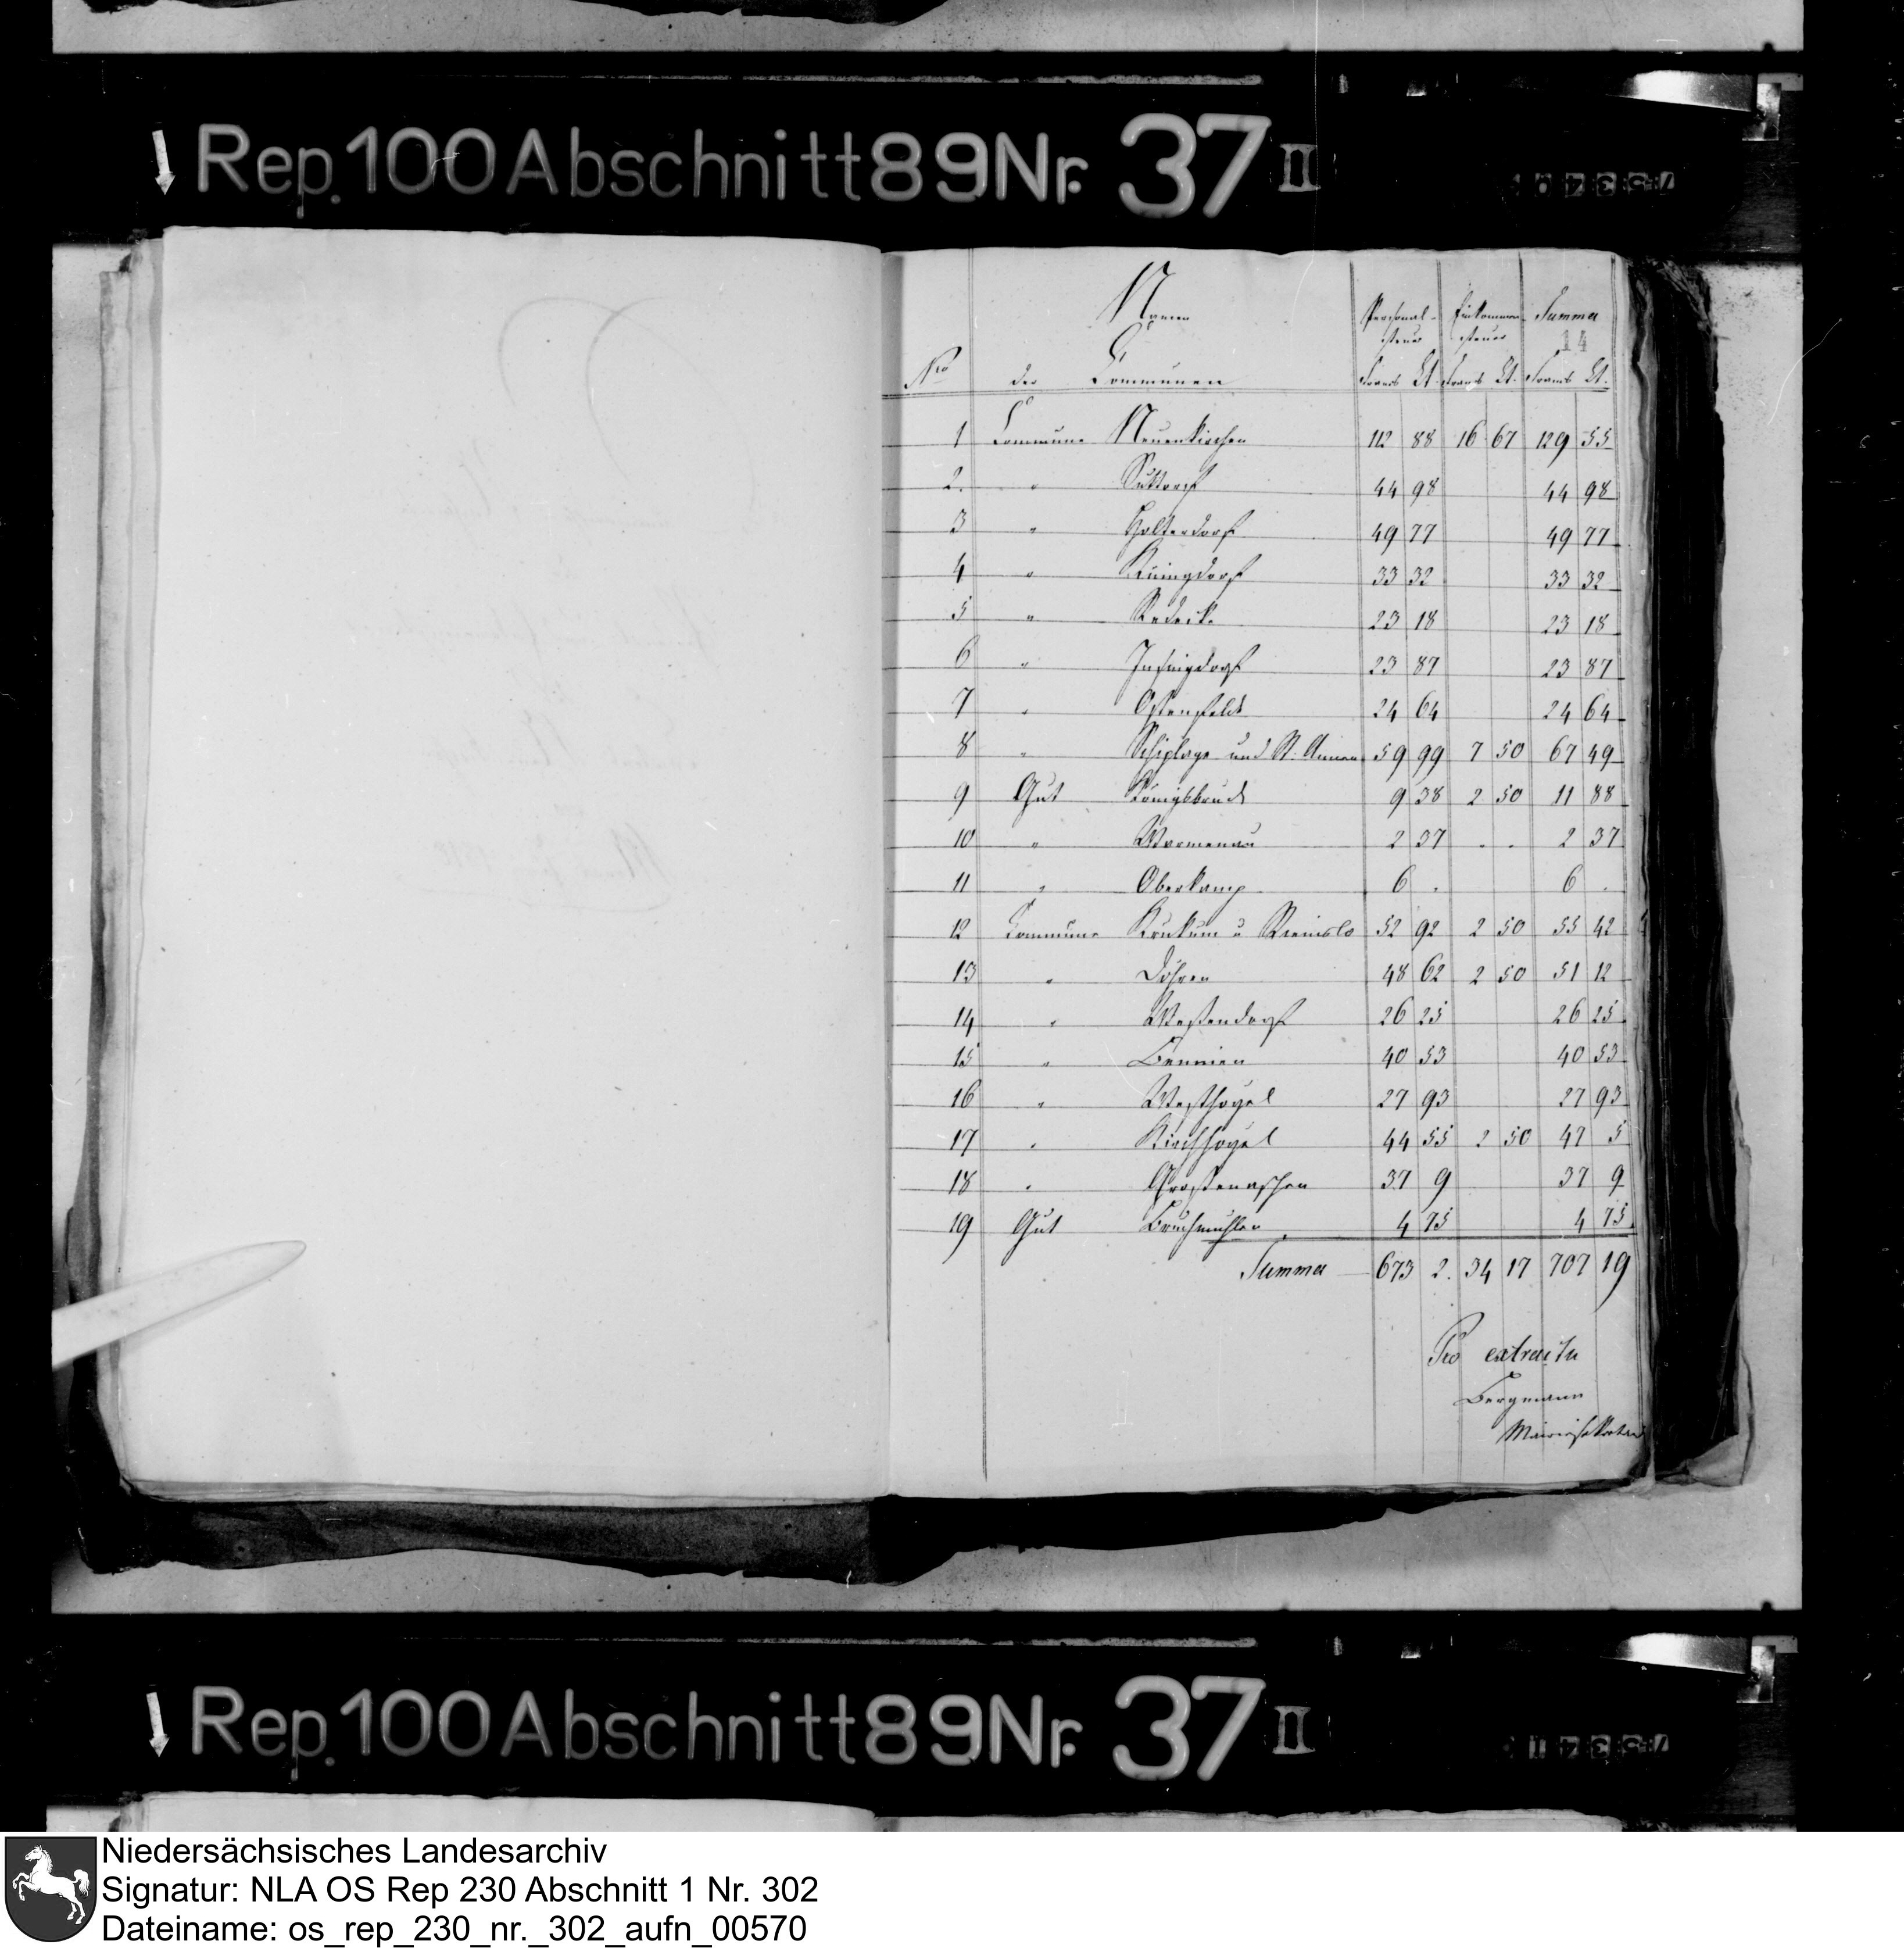 Rep. 100 Abschnitt 89 Nr. 37 II
Namen
Personal- Einkommen- Summa
steuer steuer 14
Nro der Communen Francs Ct. Francs Ct. Francs Ct.
1 Commune Neuenkirchen 112 88 16 67 129 55
2. " Suttorf 44 98 44 98
3 " Holterdorf 49 77 49 77
4 " Küingdorf 33 32 33 32
5 " Redecke 23 18 23 18
6 " Insingdorf 23 87 23 87
7 " Ostenfelde 24 64 24 64
8 " Schiplage und St. Annen 59 99 7 50 67 49
9 Gut Königsbrück 9 38 2 50 11 88
10 " Warmenau 2 37 . . 2 37
11 " Oberkamp 6 . 6 .
12 Commune Krukum u Riemslo 52 92 2 50 55 42
13 " Döhren 48 62 2 50 51 12
14 " Westendorf 26 25 26 25
15 " Bennien 40 53 40 53
16 " Westhoyel 27 93 27 93
17 " Kirchhoyel 44 55 2 50 47 5
18 " Großenaschen 37 9 37 9
19 Gut Bruchmühlen 4 75 4 75
Summa 673 2. 34 17 707 19
Pro extractu
Bergmann
Rep. 100 Abschnitt 89 Nr. 37 II
Niedersächsisches Landesarchiv
Signatur: NLA OS Rep 230 Abschnitt 1 Nr. 302
Dateiname: os_rep_230_nr._302_aufn_00570